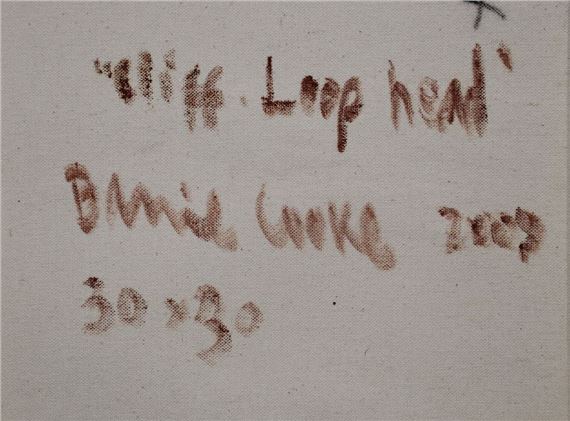 "Cliff. Loop head"
Barrie Cooke 2007
30 x 30